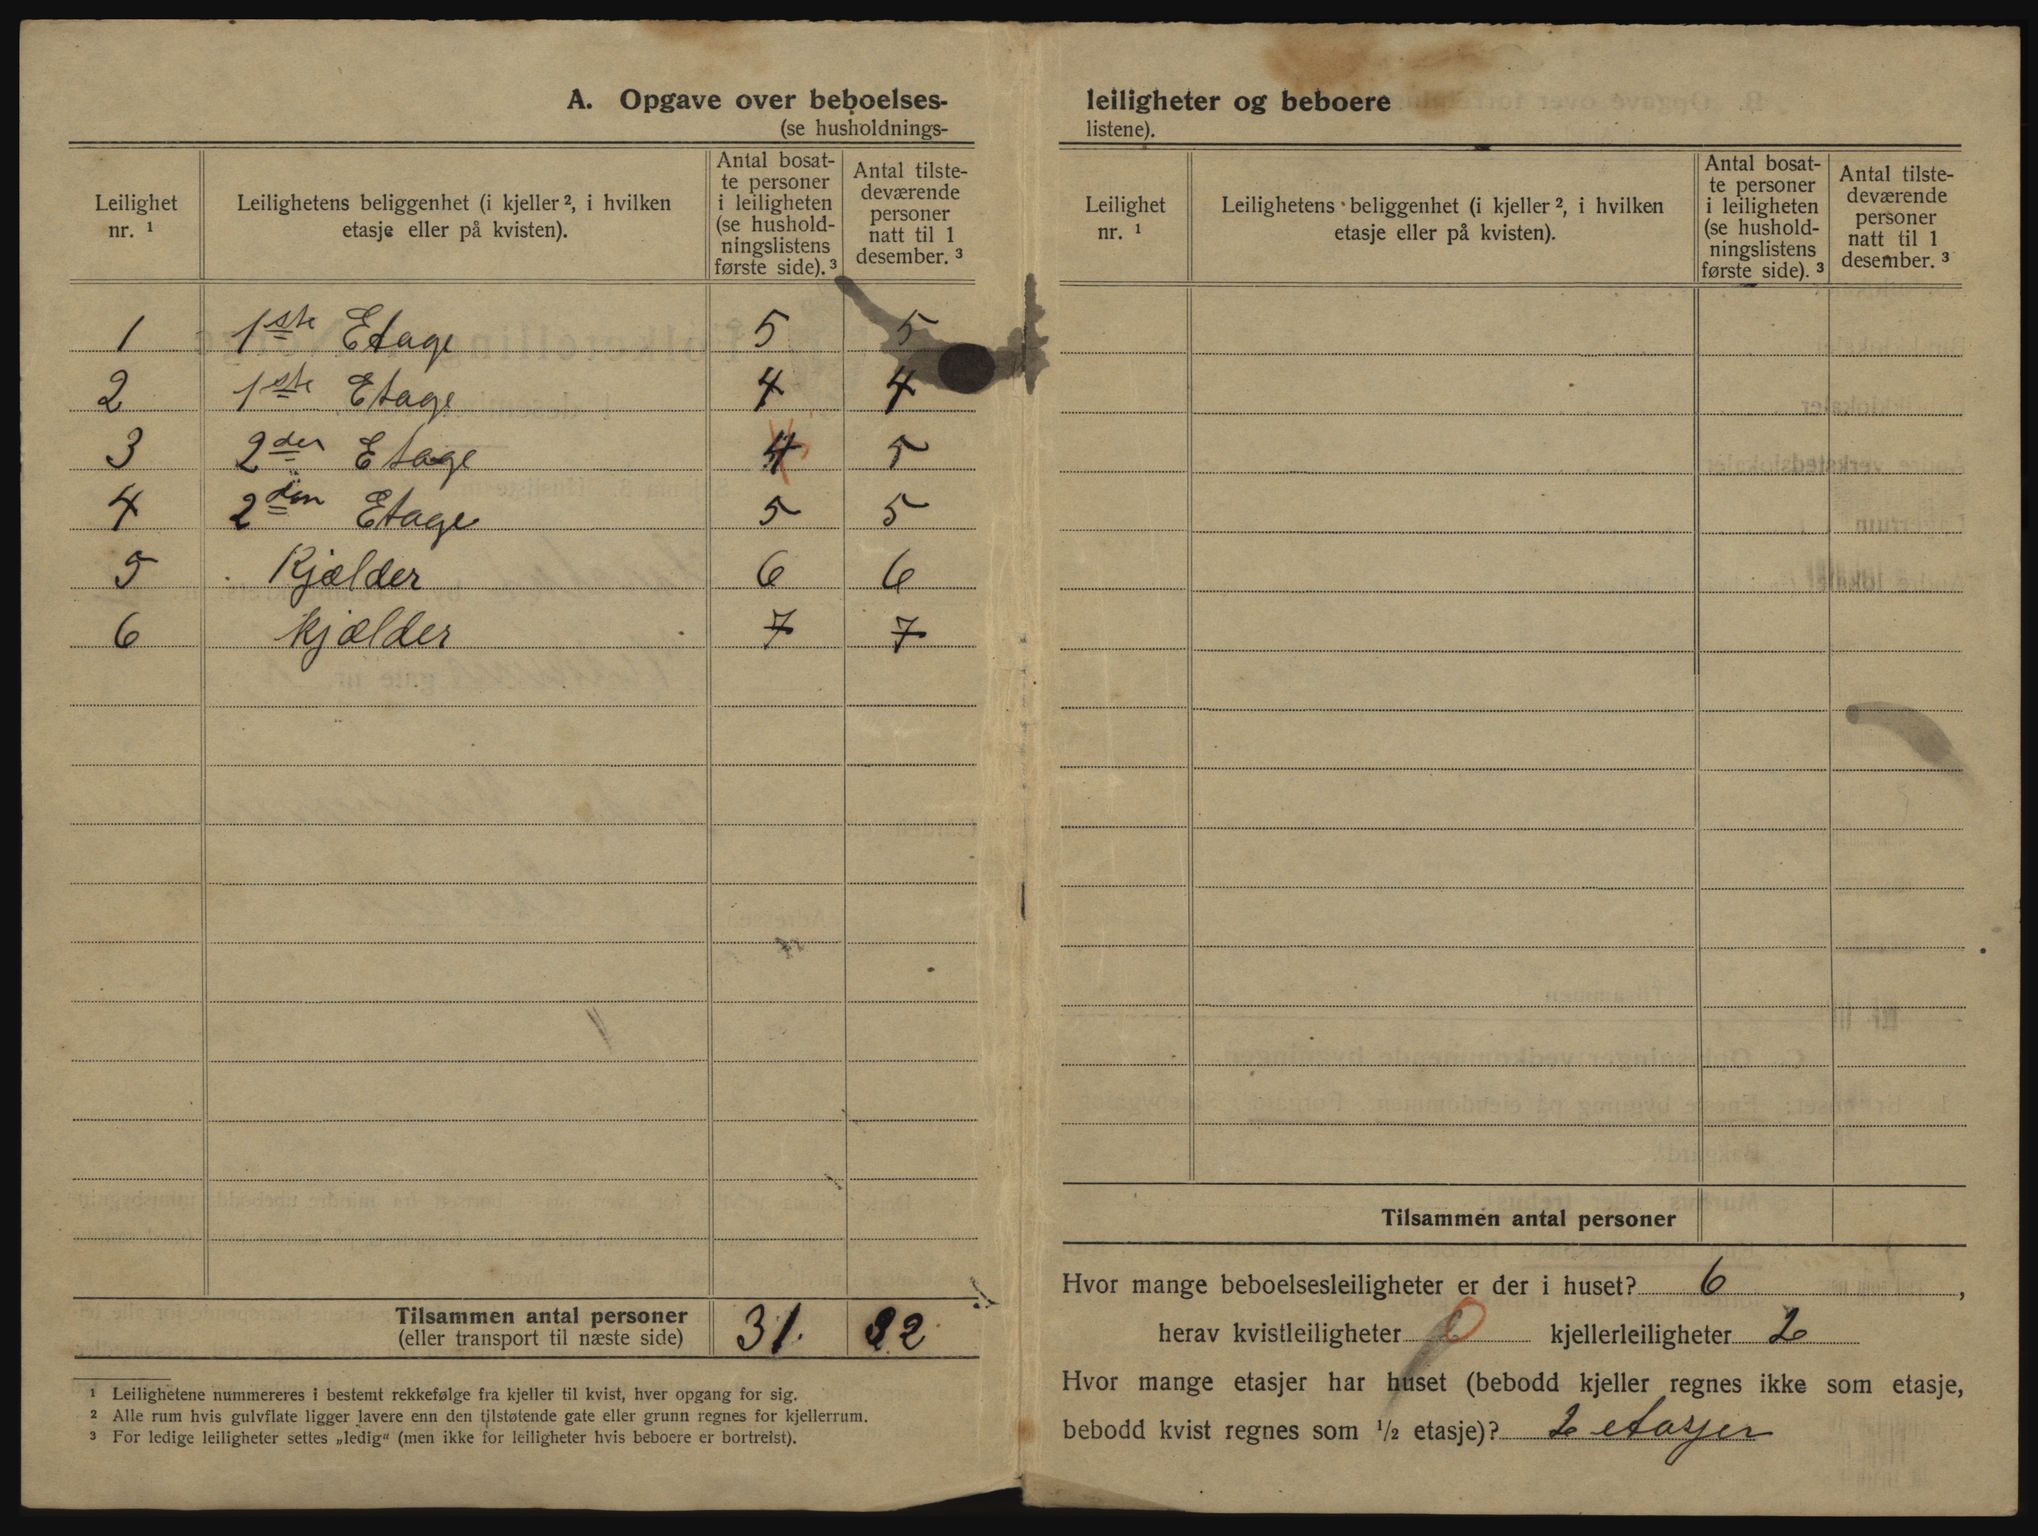 A. Opgave over beboelses-
(se husholdnings-
Leilighet nr. ¹
Leilighetens beliggenhet (i kjeller ², i hvilken etasje eller på kvisten).
Antal bosat-
te personer
i leiligheten
(se hushold-
ningslistens
første side). ³
Antal tilste-
deværende
personer
natt til 1
desember. ³
1 1ste Etage 5 5
2 1ste Etage 4 4
3 2den Etage 4 5
4 2den Etage 5 5
5 Kjælder 6 6
6 kjælder 7 7
Tilsammen antal personer 31. 32
(eller transport til næste side)
¹ Leilighetene nummereres i bestemt rekkefølge fra kjeller til kvist, hver opgang for sig.
² Alle rum hvis gulvflate ligger lavere enn den tilstøtende gate eller grunn regnes for kjellerrum.
³ For ledige leiligheter settes „ledig“ (men ikke for leiligheter hvis beboere er bortreist).
leiligheter og beboere
listene).
Leilighet nr. ¹
Leilighetens beliggenhet (i kjeller ², i hvilken etasje eller på kvisten).
Antal bosat-
te personer
i leiligheten
(se hushold-
ningslistens
første side). ³
Antal tilste-
deværende
personer
natt til 1
desember. ³
Tilsammen antal personer
Hvor mange beboelsesleiligheter er der i huset? 6,
herav kvistleiligheter 0 kjellerleiligheter 2
Hvor mange etasjer har huset (bebodd kjeller regnes ikke som etasje,
bebodd kvist regnes som ½ etasje)? 2 etasjer